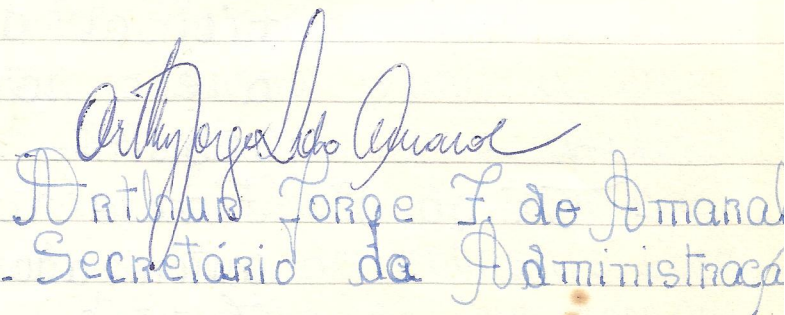 Arthur Jorge F. do Amaral
Arthur Jorge F. do Amaral
- Secretário da Administraçã